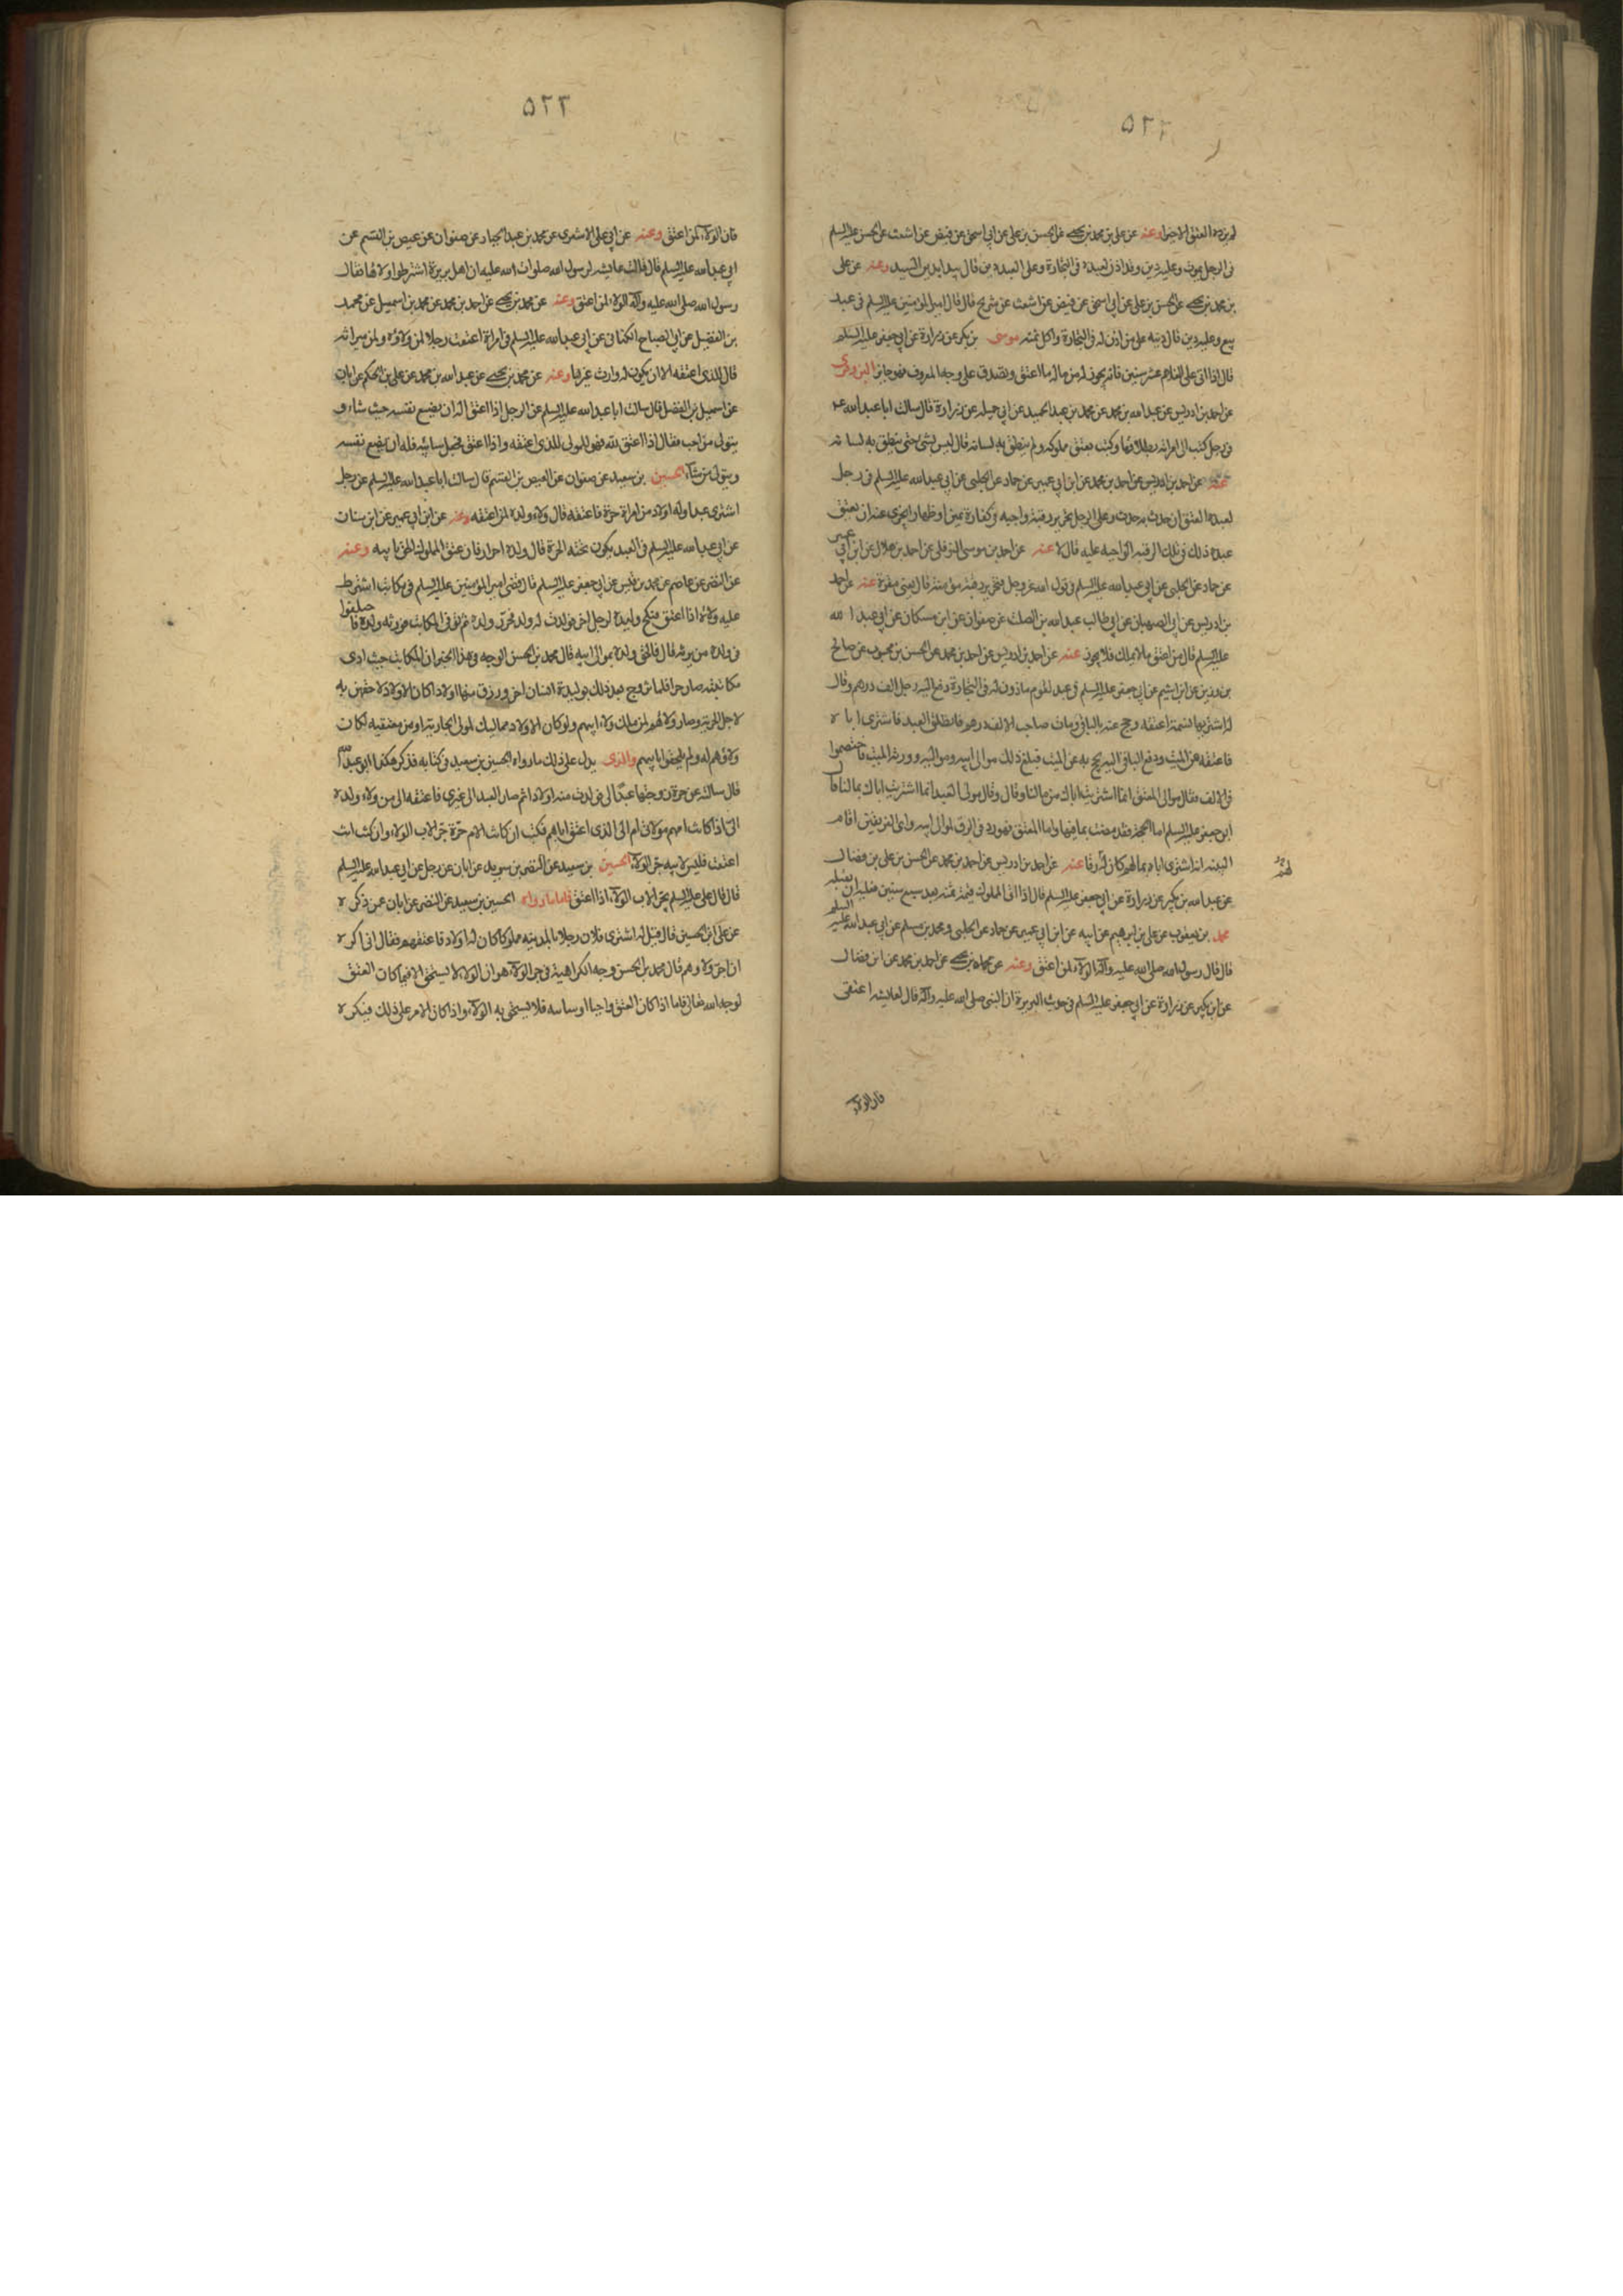 ٥٢٢
لم يزده العتق الا خيرا وعنه عن علي بن محمد بن يحيى عن الحسن بن علي عن ابي اسحق عن فيض عن اشعث عن الحسن عليه السلم
في الرجل يموت وعليه دين وقد اذن لعبده في التجارة وعلى العبد دين قال يبدا بدين السيد وعنه عن علي
بن محمد بن يحيى عن الحسن بن علي عن ابي اسحق عن فيض عن اشعث عن شريح قال قال امير المؤمنين عليه السلم في عبد
بيع وعليه دين قال دينه على من اذن له في التجارة واكل ثمنه موسى بن بكر عن زرارة عن ابي جعفر عليه السلم
قال اذا اتى على الغلام عشر سنين فانه يجوز له من ماله ما اعتق وتصدق على وجه المعروف فهو جائز البزوفرى
عن احمد بن ادريس عن عبد الله بن محمد عن محمد بن عبد الحميد عن ابي جميله عن زرارة قال سالت ابا عبد الله ع
في رجل كتب الى امراته بطلاقها وكتب بعتق مملوكه ولم ينطق به لسانه قال ليس بشئ حتى ينطق به لسانه
عنه عن احمد بن ادريس عن احمد بن محمد عن ابن ابي عمير عن حماد عن الحلبي عن ابي عبد الله عليه السلم في رجل
لعبده العتق ان حدث به حدث وعلى الرجل تحرير رقبة واجبه في كفارة يمين او ظهار ايجزى عنه ان يعتق
عبده ذلك في تلك الرقبه الواجبه عليه قال لا عنه عن احمد بن موسى النوفلي عن احمد بن هلال عن ابن ابي عمير
عن حماد عن الحلبي عن ابي عبد الله عليه السلم في قول الله عز وجل فتحرير رقبة مؤمنة قال يعني مقرة عنه عن احمد
بن ادريس عن ابن الصهبان عن ابي طالب عبد الله بن الصلت عن صفوان عن ابن مسكان عن ابي عبد الله
عليه السلم قال من اعتق ما لا يملك فلا يجوز عنه عن احمد بن ادريس عن احمد بن محمد عن الحسن بن محبوب عن صالح
بن رزين عن ابن اشيم عن ابي جعفر عليه السلم في عبد لقوم ماذون له في التجارة دفع اليه رجل الف درهم وقال
له اشتر بها نسمة اعتقه وحج عنه بالباقي ومات صاحب الالف درهم فانطلق العبد فاشترى اباه
فاعتقه عن الميت ودفع الباقي اليه يحج به عن الميت فبلغ ذلك موالي ابيه ومواليه وورثة الميت فاختصموا
في الالف فقال موالي المعتق انما اشتريت اباك من مالنا وقال وقال مولى العبد انما اشتريت اباك بمالنا قال
ابو جعفر عليه السلم اما الحجة فقد مضت بما فيها واما المعتق فهو رد في الرق لموالي ابيه واي الفريقين اقام
البينه انه اشترى اباه بمالهم كان له رقا عنه عن احمد بن ادريس عن احمد بن محمد عن الحسن بن علي بن فضال
عن عبد الله بن بكير عن زرارة عن ابي جعفر عليه السلم قال اذا اتى المملوك قيمة ثمنه بعد سبع سنين فعليه ان يقبله
محمد بن يعقوب عن علي بن ابرهيم عن ابيه عن ابن ابي عمير عن حماد عن الحلبي ومحمد بن مسلم عن ابي عبد الله عليه السلم
قال قال رسول الله صلى الله عليه وآله الولاء لمن اعتق وعنه عن محمد بن يحيى عن احمد بن محمد عن ابن فضال
عن ابن بكير عن زرارة عن ابي جعفر عليه السلم في حديث البريرة ان النبي صلى الله عليه وآله قال لعايشه اعتقى
فان الولاء
٥٢٣
فان الولاء لمن اعتق وعنه عن ابي علي الاشعرى عن محمد بن عبد الجبار عن صفوان عن عيص بن القسم عن
ابي عبد الله عليه السلم قال قالت عايشه لرسول الله صلوات الله عليه ان اهل بريرة اشترطوا ولاءها فقال
رسول الله صلى الله عليه وآله الولاء لمن اعتق وعنه عن محمد بن يحيى عن احمد بن محمد عن محمد بن اسمعيل عن محمد
بن الفضيل عن ابي الصباح الكناني عن ابي عبد الله عليه السلم في امراة اعتقت رجلا لمن ولاؤه ولمن ميراثه
قال للذى اعتقه الا ان يكون له وارث غيرها وعنه عن محمد بن يحيى عن عبد الله بن محمد عن علي بن الحكم عن ابان
عن اسمعيل بن الفضل قال سالت ابا عبد الله عليه السلم عن الرجل اذا اعتق اله ان يضع نفسه حيث شاء و
يتولى من احب فقال اذا اعتق لله فهو المولى للذى اعتقه واذا اعتق فجعل سائبه فله ان يضع نفسه
ويتولى من شاء الحسين بن سعيد عن صفوان عن العيص بن القسم قال سالت ابا عبد الله عليه السلم عن رجل
اشترى عبدا وله اولاد من امراة حرة فاعتقه قال ولاء ولده لمن اعتقه وعنه عن ابن ابي عمير عن ابن سنان
عن ابي عبد الله عليه السلم في العبد يكون تحته الحرة قال ولده احرار فان عتق المملوك لحق بابيه وعنه
عن النضر عن عاصم عن محمد بن قيس عن ابي جعفر عليه السلم قال قضى امير المؤمنين عليه السلم في مكاتب اشترط
عليه ولاؤه اذا اعتق فنكح وليدة لرجل اخر فولدت له ولد فحرر ولده ثم توفى المكاتب فورثه ولده فاختلفوا
في ولده من يرثه قال فالحق ولده بموالي ابيه قال محمد بن الحسن الوجه في هذا الخبر ان المكاتب حيث ادى
مكاتبته صار حرا فلما تزوج بعد ذلك بوليدة انسان اخر ورزق منها اولاد كان الاولاد لاحقين به
لاجل الحرية وصار ولاءهم لمن ملك ولاء ابيهم ولو كان الاولاد مماليك لمولى الجارية او من معتقيه لكان
ولاؤهم له ولم يلحقوا بابيهم والذى يدل على ذلك ما رواه الحسين بن سعيد في كتابه فذكر هكذا ابو عبد الله
قال سالته عن حرة زوجتها عبدا لي فولدت منه اولادا ثم صار العبد الى غيري فاعتقه الى من ولاء ولده
الى اذا كانت امهم مولاتي ام الى الذى اعتق اباهم فكتب ان كانت الام حرة جر الاب الولاء وان كنت انت
اعتقت فليس لابيه جر الولاء الحسين بن سعيد عن النضر بن سويد عن ابان عن رجل عن ابي عبد الله عليه السلم
قال قال علي عليه السلم يجر الاب الولاء اذا اعتق فاما ما رواه الحسين بن سعيد عن النضر عن ابان عمن ذكره
عن علي ابن الحسين قال قيل له اشترى فلان رجلا بالمدينه مملوكا كان له اولاد فاعتقهم فقال اني اكره
ان اجر ولاءهم قال محمد بن الحسن وجه الكراهية في جر الولاء هو ان الولاء لا يستحق الا فيما كان العتق
لوجه الله تعالى فاما اذا كان العتق واجبا او سائبه فلا يستحق به الولاء واذا كان الامر على ذلك فيكره